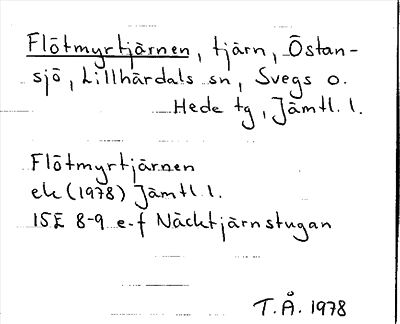 Flötmyrtjärnen, tjärn, Östan-
sjö, Lillhärdals sn, Svegs o.
Hede tg, Jämtl. l.
Flötmyrtjärnen
ek (1978) Jämtl. l.
15E 8-9 e-f Näcktjärnstugan
T.Å. 1978